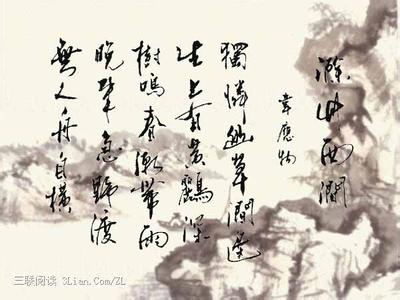 滁州西澗
韋應物
獨憐幽草澗邊
生上有黃鸝深
樹鳴春潮帶雨
晚來急野渡
無人舟自橫
三联阅读 3Lian.Com/ZL